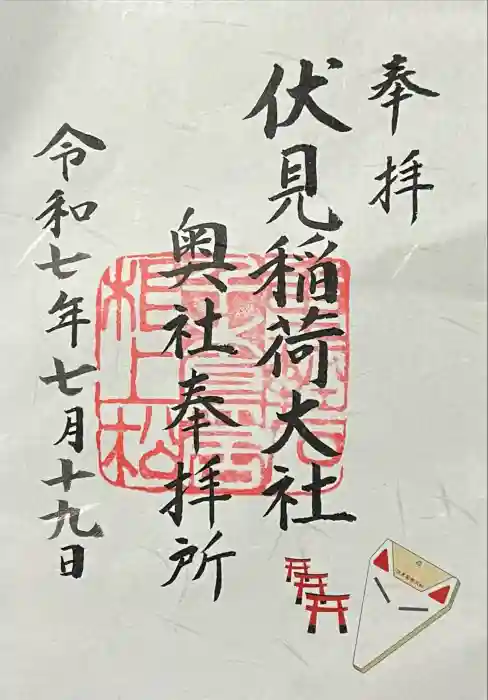 奉拝
伏見稲荷大社
奥社奉拝所
令和七年七月十九日